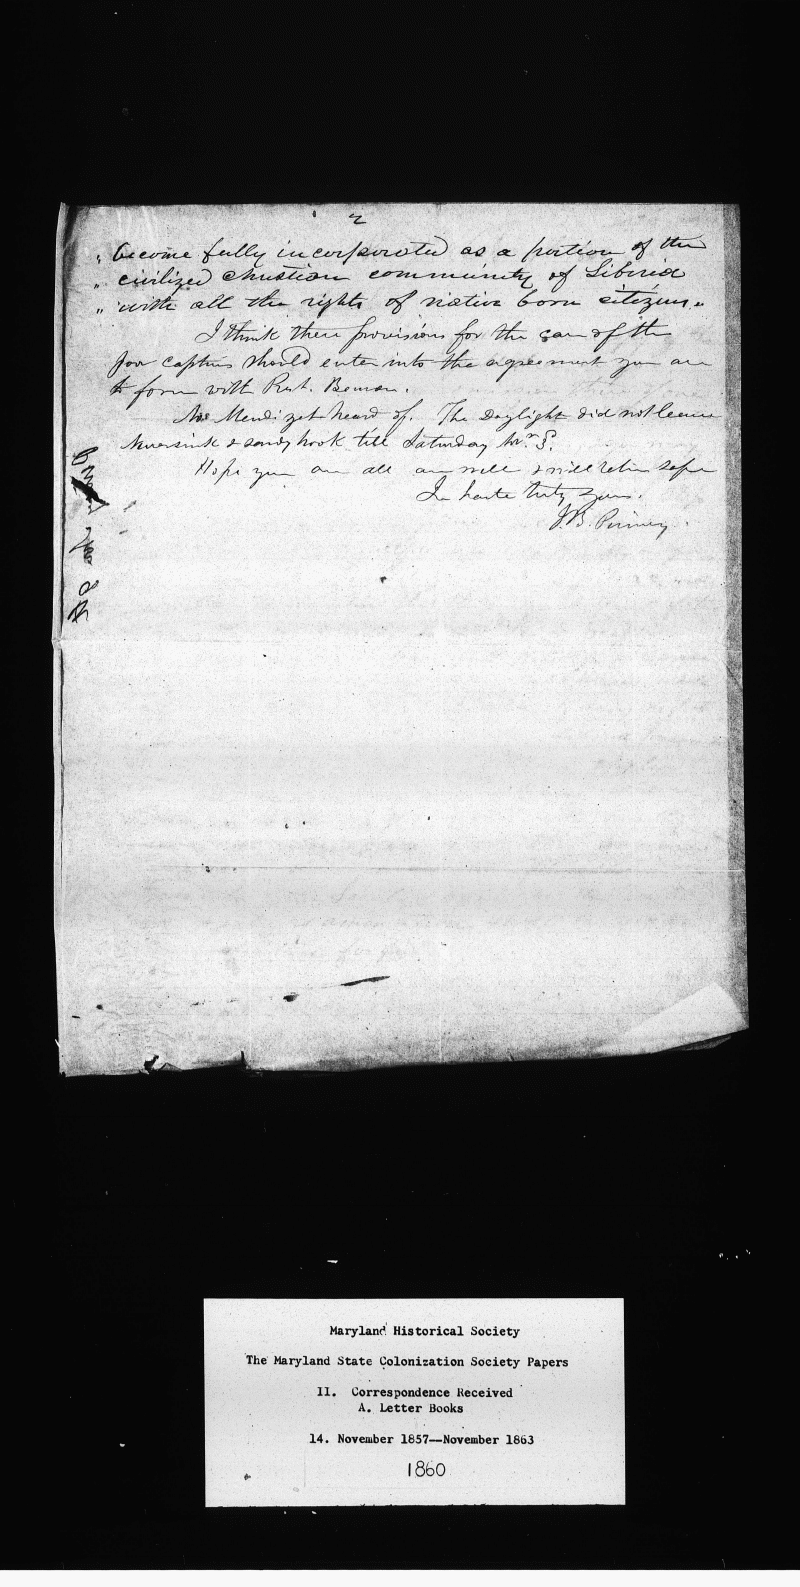 2
" become fully incorporated as a portion of the
" civilized Christian community of Liberia
" with all the rights of native born citizens."
I think these provisions for the care of the
poor captives should enter into the agreement you are
to form with Prest. Benson.
No Mendi yet heard of. The Daylight did not leave
Neversink & Sandy hook till Saturday
Hope you are all are well & will return safe
In haste truly yours.
J. B. Pinney.
Maryland Historical Society
The Maryland State Colonization Society Papers
II. Correspondence Received
A. Letter Books
14. November 1857--November 1863
1860